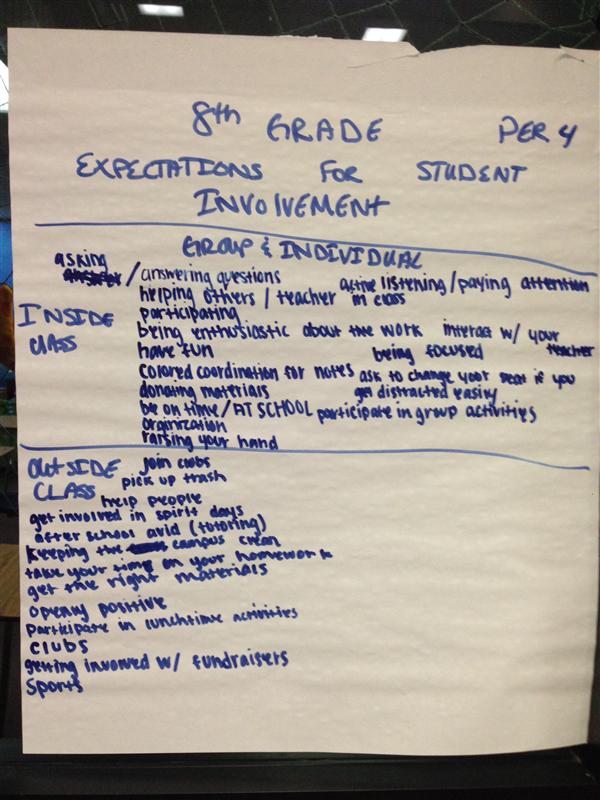 8th GRADE PER 4
EXPECTATIONS FOR STUDENT
INVOLVEMENT
GROUP & INDIVIDUAL
INSIDE CLASS
asking / answering questions active listening/paying attention
helping others / teacher in class
participating
being enthusiastic about the work interact w/ your teacher
have fun being focused
colored coordination for notes ask to change your seat if you
donating materials get distracted easily
be on time / AT SCHOOL participate in group activities
orginization
raising your hand
OUtSIDE CLASS
join clubs
pick up trash
help people
get involved in spirit days
after school avid (tutoring)
keeping the campus clean
take your time on your homework
get the right materials
openly positive
Participate in lunchtime activities
clubs
getting involved w/ fundraisers
Sports